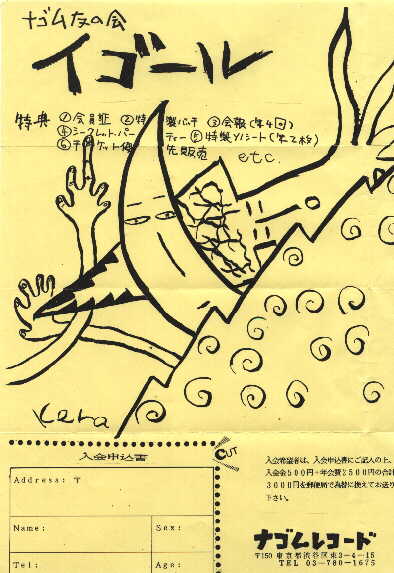 ナゴム友の会
イゴール
特典 ①会員証 ②特製バッチ ③会報(年4回)
④シークレット・パーティー ⑤特製ソノシート(年2枚)
⑥チケット優先販売 etc.
Kera
CUT
入会申込書
Address: 〒
Name: Sex:
Tel: Age:
入会希望者は、入会申込書にご記入の上、
入会金500円+年会費2500円の合計
3000円を郵便局で為替に換えてお送り
下さい。
ナゴムレコード
〒150 東京都渋谷区東3-4-15
TEL 03-780-1675